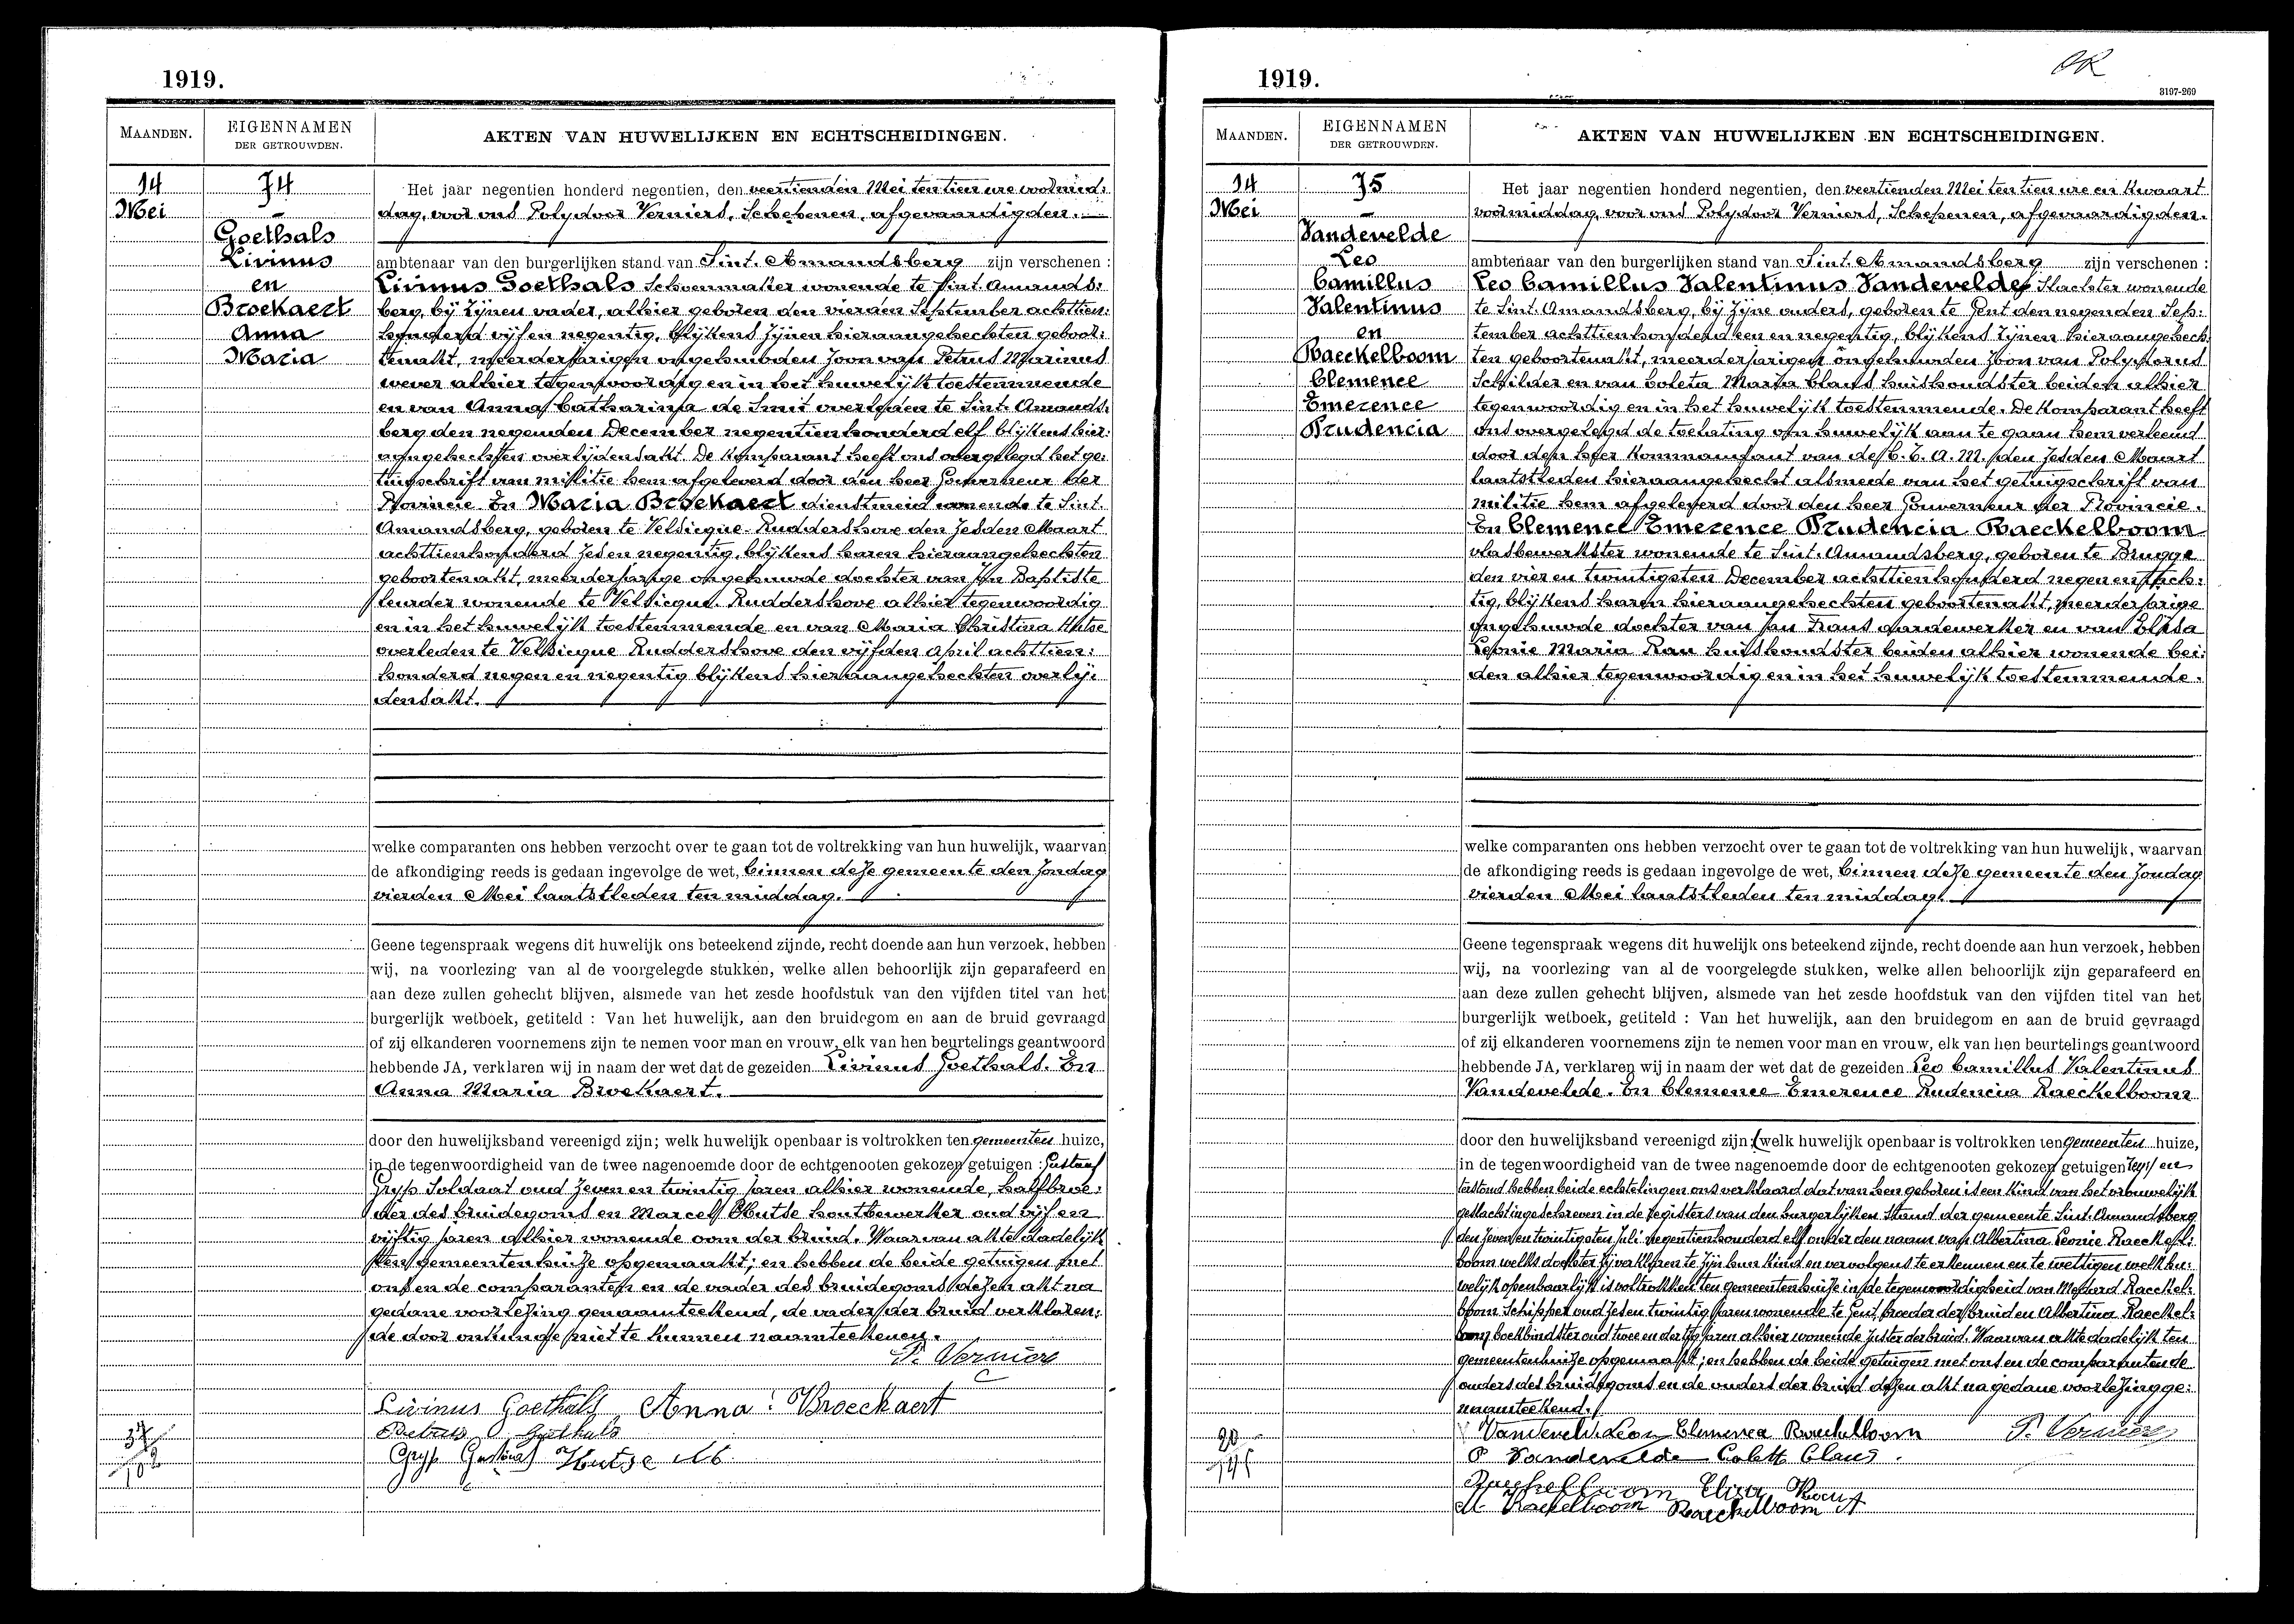 1919.
MAANDEN.
EIGENNAMEN
DER GETROUWDEN.
AKTEN VAN HUWELIJKEN EN ECHTSCHEIDINGEN.
14
Mei
74
Goethals
Livinus
en
Broekaert
Anna
Maria
Het jaar negentien honderd negentien, den veertienden Mei ten tien ure voormid:
dag, voor ons Polydoor Verniers, Schepenen, afgevaardigden.
ambtenaar van den burgerlijken stand van Sint. Amandsberg zijn verschenen :
Livinus Goethals Schoenmaker wonende te Sint. Amands:
berg, bij zijnen vader, alhier geboren den vierden September achttien:
honderd vijfen negentig, blijkens zijnen hieraangehechten geboor:
tenakt, meerderjarigen ongehuwden zoon van Petrus Marinus
wever alhier tegenwoordig en in het huwelijk toestemmende
en van Anna Catharina de Smit overleden te Sint. Amands:
berg den negenden December negentienhonderd elf blijkens hier:
aangehechten overlijdensakt. De Komparant heeft ons overgelegd het ge:
tuigschrift van militie hem afgeleverd door den heer Gouverneur der
Provincie. En Maria Broekaert dienstmeid wonende te Sint.
Amandsberg, geboren te Velsicque-Ruddershove den zesden Maart
achttienhonderd zesen negentig, blijkens haren hieraangehechten
geboortenakt, meerderjarige ongehuwde dochter van Jan Baptiste
leurder wonende te Velsicque. Ruddershove alhier tegenwoordig
en in het huwelijk toestemmende en van Maria Christina Hutse
overleden te Velsicque Ruddershove den vijfden April achttien:
honderd negen en negentig blijkens hieraangehechten overlij:
densakt.
welke comparanten ons hebben verzocht over te gaan tot de voltrekking van hun huwelijk, waarvan
de afkondiging reeds is gedaan ingevolge de wet, binnen deze gemeente den Zondag
vierden Mei laatstleden ten middag.
Geene tegenspraak wegens dit huwelijk ons beteekend zijnde, recht doende aan hun verzoek, hebben
wij, na voorlezing van al de voorgelegde stukken, welke allen behoorlijk zijn geparafeerd en
aan deze zullen gehecht blijven, alsmede van het zesde hoofdstuk van den vijfden titel van het
burgerlijk wetboek, getiteld : Van het huwelijk, aan den bruidegom en aan de bruid gevraagd
of zij elkanderen voornemens zijn te nemen voor man en vrouw, elk van hen beurtelings geantwoord
hebbende JA, verklaren wij in naam der wet dat de gezeiden Livinus Goethals. En
Anna Maria Broekaert.
door den huwelijksband vereenigd zijn; welk huwelijk openbaar is voltrokken ten gemeenten huize,
in de tegenwoordigheid van de twee nagenoemde door de echtgenooten gekozen getuigen : Gustaaf
Gryp Soldaat oud zeven en twintig jaren alhier wonende, halfbroe:
der des bruidegoms en Marcel Hutse houtbewerker oud vijf en
vijftig jaren alhier wonende oom der bruid. Waarvan akte dadelijk
ten gemeentenhuize opgemaakt; en hebben de beide getuigen met
ons en de comparanten en de vader des bruidegoms dezen akt na
gedane voorlezing genaamteekend, de vader der bruid verklaren:
de door onkunde niet te kunnen naamteekenen.
P. Verniers
Livinus Goethals Anna Broeckaert
Petrus Goethals
Gryp Gustaaf Hutse M
1919.
OK
3197-269
MAANDEN.
EIGENNAMEN
DER GETROUWDEN.
AKTEN VAN HUWELIJKEN EN ECHTSCHEIDINGEN.
14
Mei
75
Vandevelde
Leo
Camillus
Valentinus
en
Raeckelboom
Clemence
Emerence
Prudencia
Het jaar negentien honderd negentien, den veertienden Mei ten tien ure en kwaart
voormiddag, voor ons Polydoor Verniers, Schepenen, afgevaardigden.
ambtenaar van den burgerlijken stand van Sint. Amandsberg zijn verschenen :
Leo Camillus Valentinus Vandevelde, Slachter wonende
te Sint. Amandsberg, bij zijne ouders, geboren te Gent den negenden Sep:
tember achttienhonderd een en negentig, blijkens zijnen hieraangehech:
ten geboortenakt, meerderjarigen ongehuwden zoon van Polydorus
Schilder en van Coleta Maria Claus huishoudster beiden alhier
tegenwoordig en in het huwelijk toestemmende. De Komparant heeft
ons overgelegd de toelating om huwelijk aan te gaan hem verleend
door den heer Kommandant van de C. C. A. M. den zesden Maart
laatstleden hieraangehecht alsmede van het getuigschrift van
militie hem afgeleverd door den heer Gouverneur der Provincie.
En Clemence Emerence Prudencia Raeckelboom
vlasbewerkster wonende te Sint. Amandsberg, geboren te Brugge
den vier en twintigsten December achttienhonderd negen en tach:
tig, blijkens haren hieraangehechten geboortenakt, meerderjarige
ongehuwde dochter van Jan Frans aardewerker en van Elisa
Leonie Maria Rau huishoudster beiden alhier wonende bei:
den alhier tegenwoordig en in het huwelijk toestemmende.
welke comparanten ons hebben verzocht over te gaan tot de voltrekking van hun huwelijk, waarvan
de afkondiging reeds is gedaan ingevolge de wet, binnen deze gemeente den Zondag
vierden Mei laatstleden ten middag.
Geene tegenspraak wegens dit huwelijk ons beteekend zijnde, recht doende aan hun verzoek, hebben
wij, na voorlezing van al de voorgelegde stukken, welke allen behoorlijk zijn geparafeerd en
aan deze zullen gehecht blijven, alsmede van het zesde hoofdstuk van den vijfden titel van het
burgerlijk wetboek, getiteld : Van het huwelijk, aan den bruidegom en aan de bruid gevraagd
of zij elkanderen voornemens zijn te nemen voor man en vrouw, elk van hen beurtelings geantwoord
hebbende JA, verklaren wij in naam der wet dat de gezeiden Leo Camillus Valentinus
Vandevelde. En Clemence Emerence Prudencia Raeckelboom
door den huwelijksband vereenigd zijn; (welk huwelijk openbaar is voltrokken ten gemeenten huize,
in de tegenwoordigheid van de twee nagenoemde door de echtgenooten gekozen getuigen
hebben beide echtelingen ons verklaard dat van hen geboren is een kind van het vrouwelijk
geslacht ingeschreven in de registers van den burgerlijken stand der gemeente Sint. Amandsberg
den zeven en twintigsten Juli negentienhonderd elf onder den naam van Albertina Leonie Raeckel:
boom welks dochter zij verklaren te zijn hun kind en vervolgens te erkennen en te wettigen welk hu:
welijk openbaarlijk is voltrokken ten gemeentenhuize in de tegenwoordigheid van Raeckel:
boom Schipper oud zesen twintig jaren wonende te Gent broeder der bruid en Albertina Raeckel:
boom boekbindster oud twee en dertig jaren alhier wonende zuster der bruid. Waarvan akte dadelijk ten
gemeentenhuize opgemaakt; en hebben de beide getuigen met ons en de comparanten de
ouders des bruidegoms en de ouders der bruid dezen akt na gedane voorlezing ge:
naamteekend.
Vandevelde Leon Clemence Raeckelboom P. Verniers
P Vandevelde Colett Claus.
Raeckelboom Eliza Rau
M Raekelboom Raeckelboom A